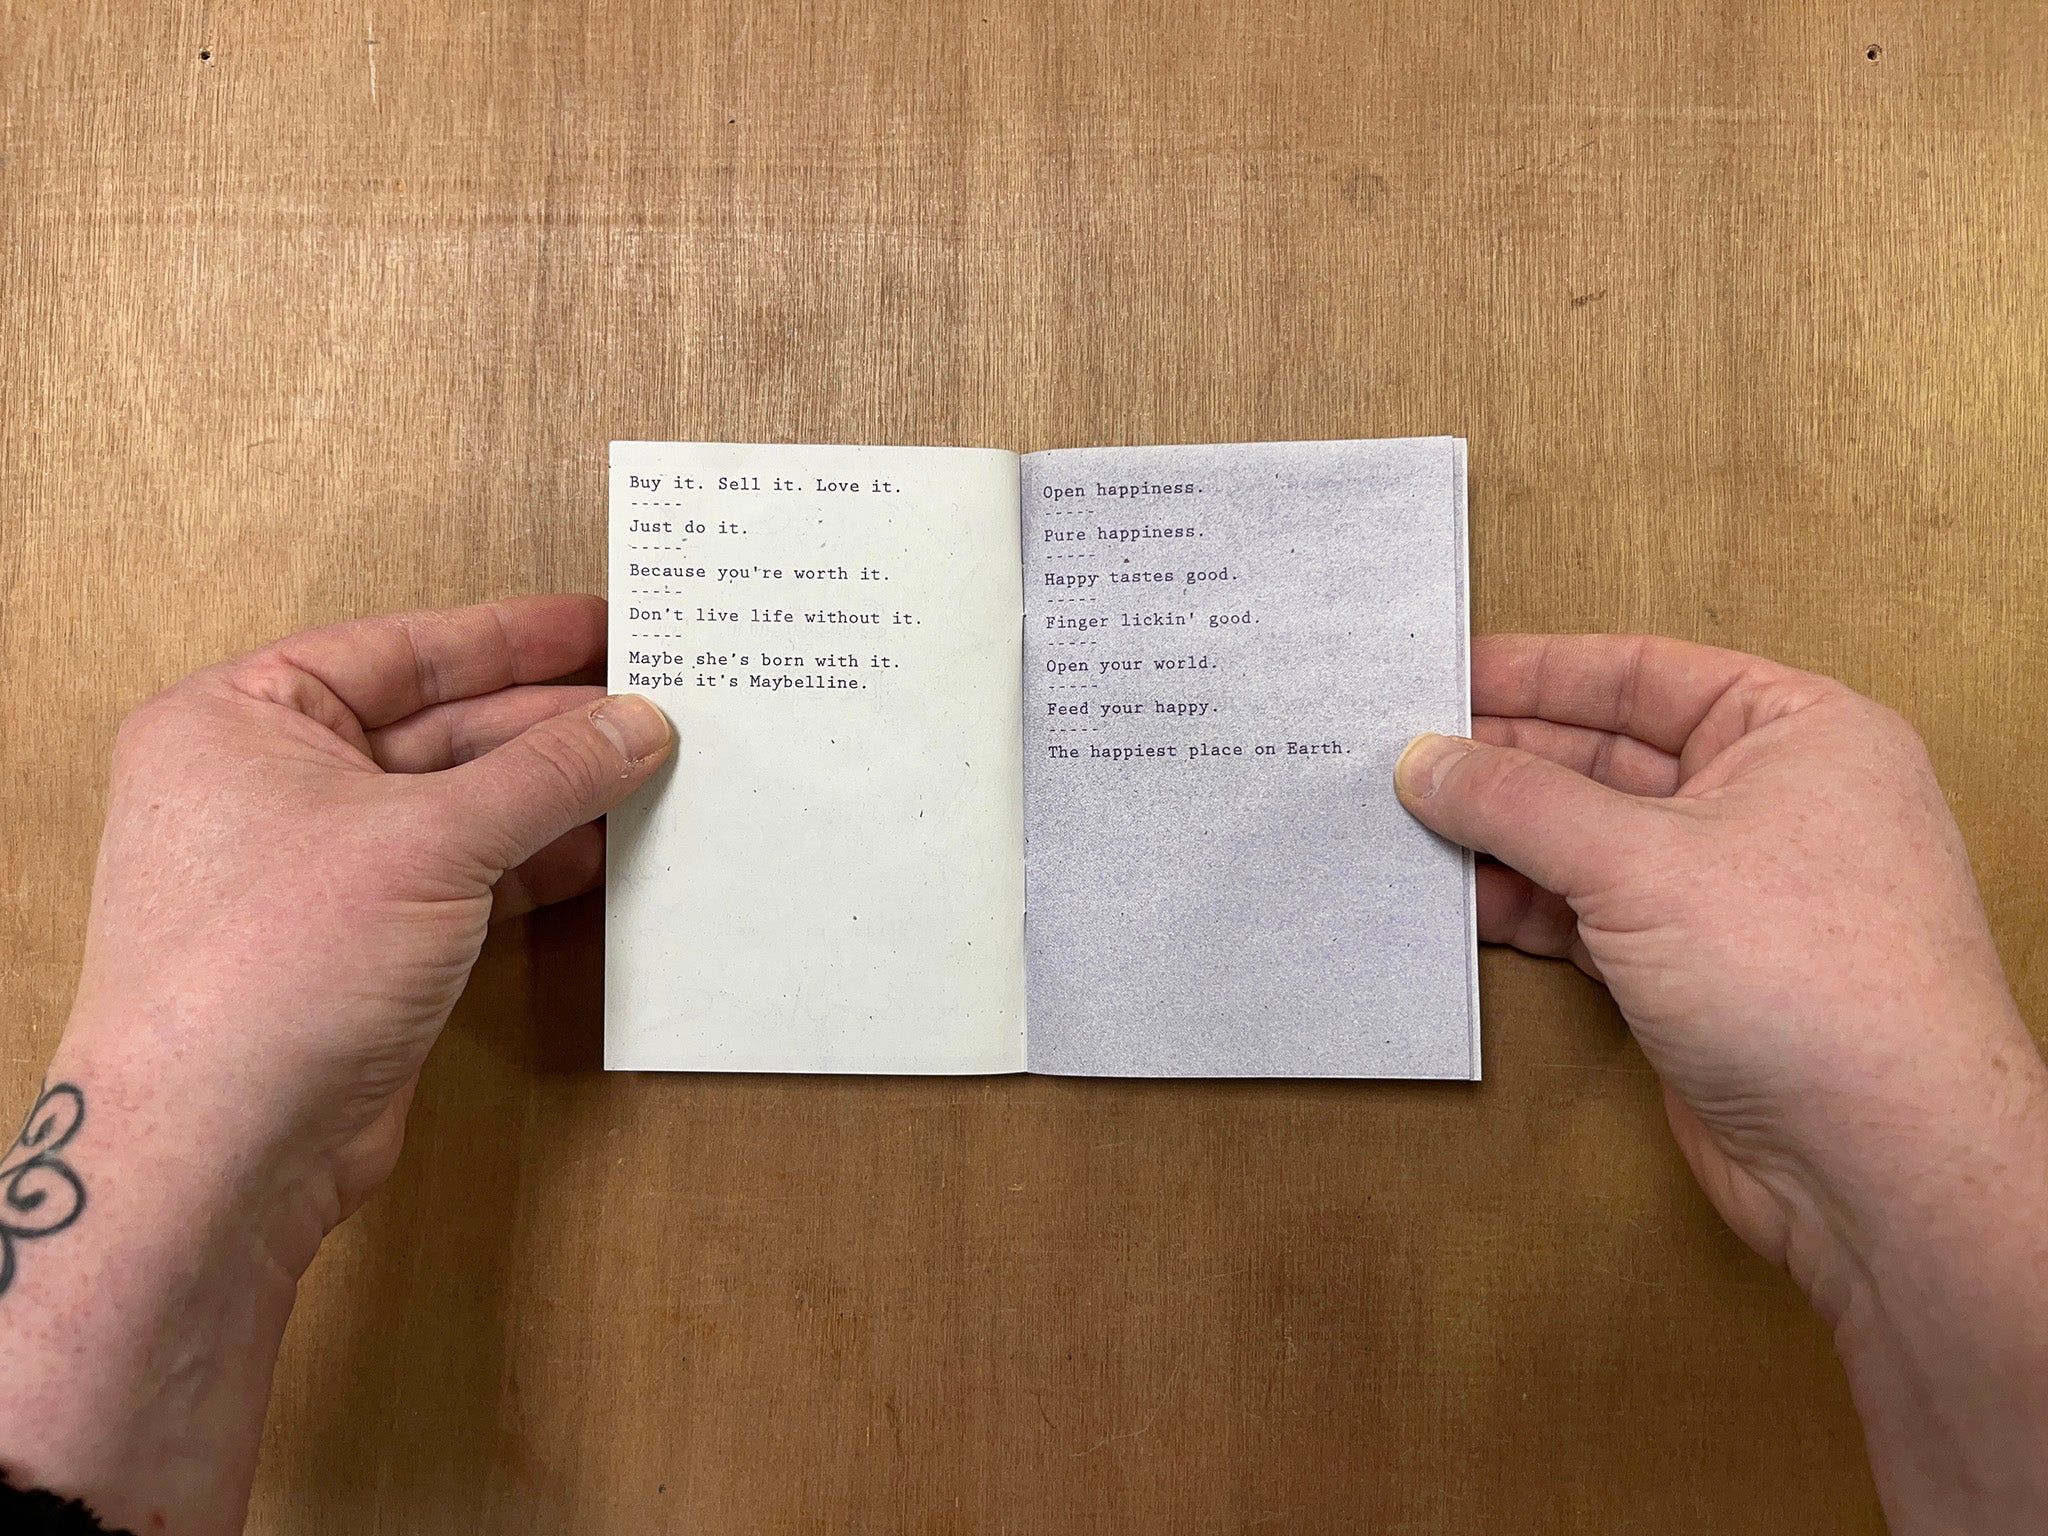 Buy it. Sell it. Love it.
-----
Just do it.
-----
Because you're worth it.
-----
Don't live life without it.
-----
Maybe she's born with it.
Maybe it's Maybelline.
Open happiness.
-----
Pure happiness.
-----
Happy tastes good.
-----
Finger lickin' good.
-----
Open your world.
-----
Feed your happy.
-----
The happiest place on Earth.